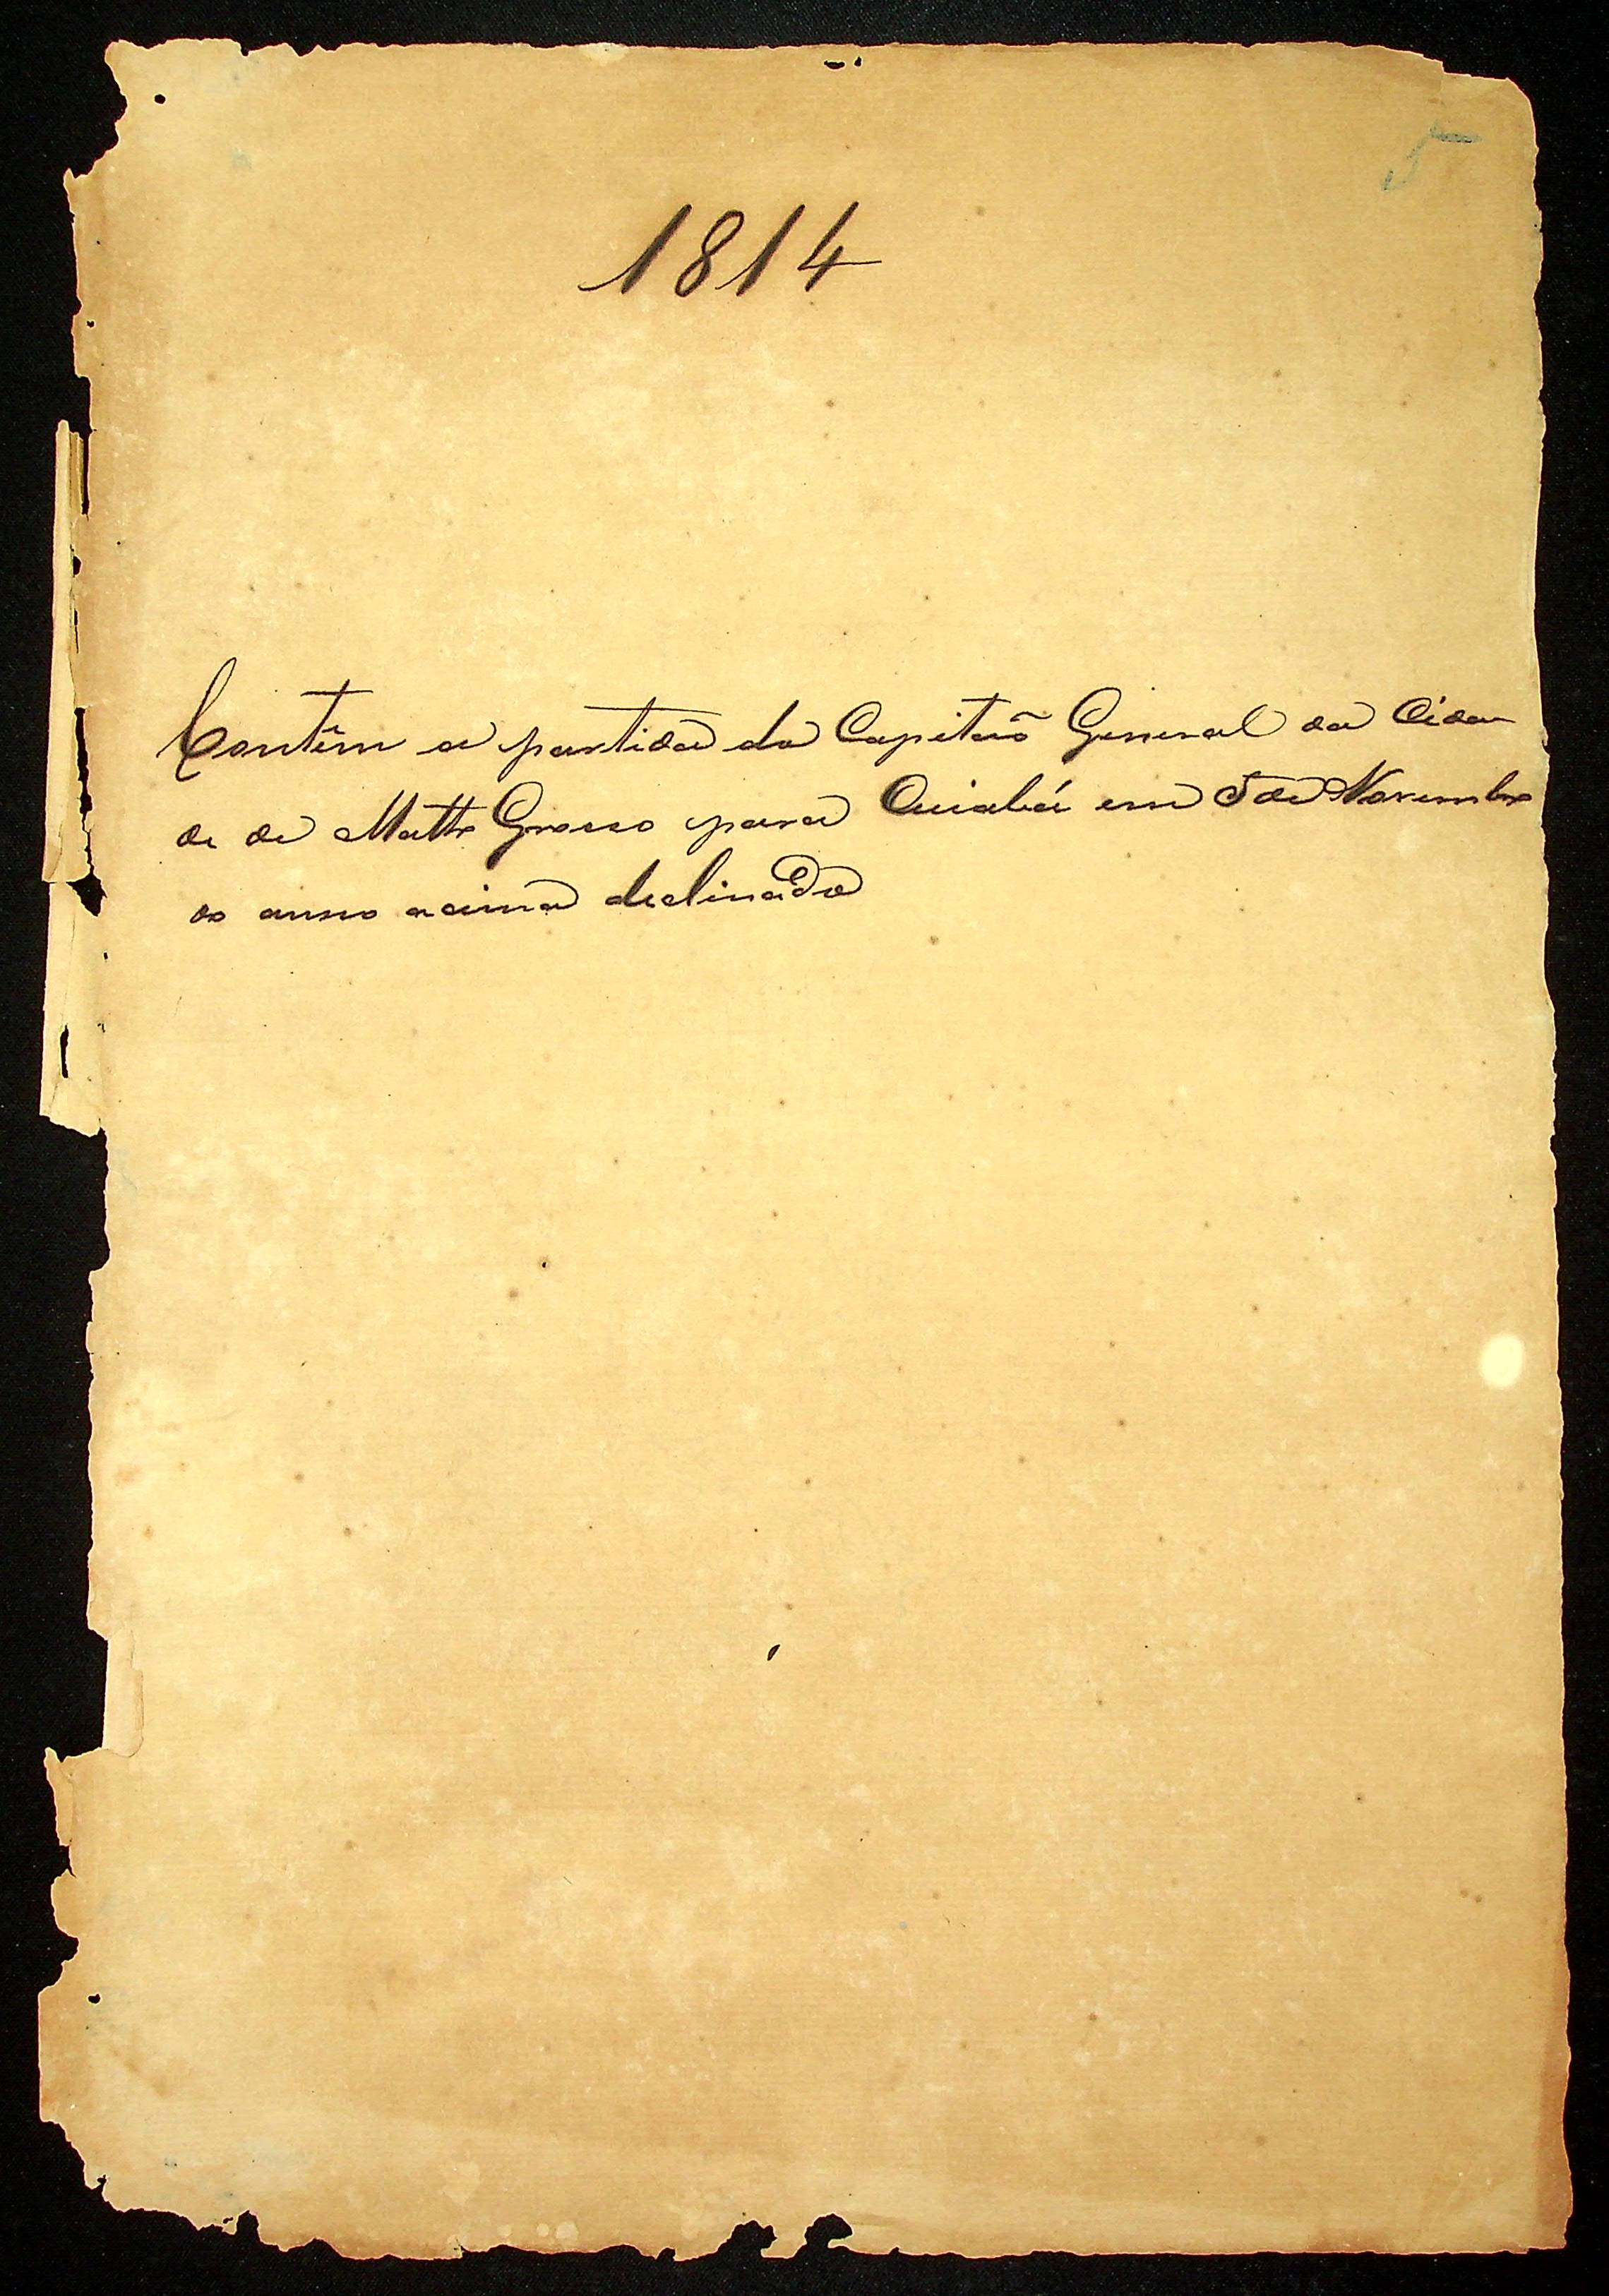 5
1814
Contêm a partida do Capitaõ General da Cida
de de Matto Grosso para Cuiabá em 5 de Novembro
do anno acima declinado